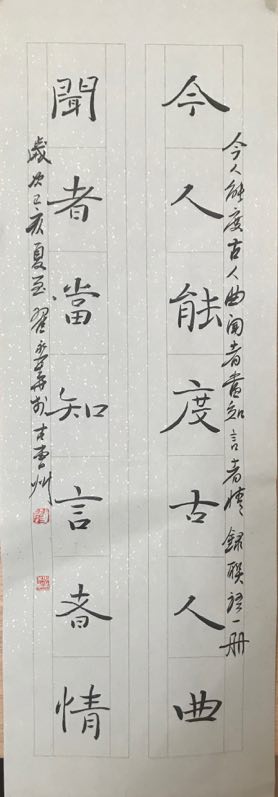 今人能度古人曲闻者當知言者情 録联语一册
今人能度古人曲
聞者當知言者情
歲次己亥夏至翟於古曹州